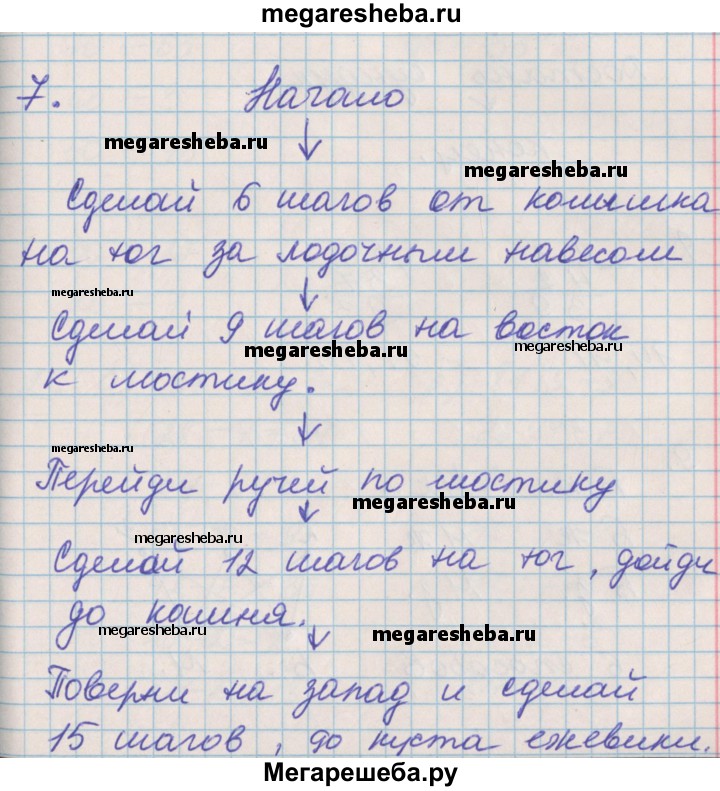 megaresheba.ru
7. Начало
megaresheba.ru
megaresheba.ru
Сделай 6 шагов от колышка
на юг за лодочным навесом
megaresheba.ru
Сделай 9 шагов на восток
megaresheba.ru megaresheba.ru
к мостику.
megaresheba.ru
Перейди ручей по мостику
megaresheba.ru
megaresheba.ru
Сделай 12 шагов на юг, дойди
до камня.
megaresheba.ru megaresheba.ru
Поверни на запад и сделай
15 шагов, до куста ежевики.
Мегарешеба.ру